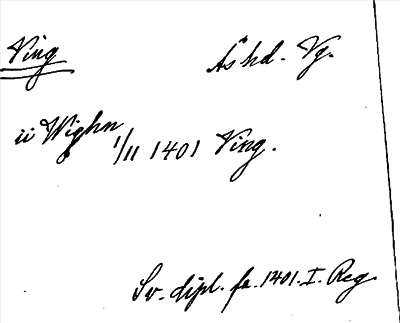 Ving Åshd. Vg.
ii Wighn 1/11 1401 Ving.
Sv. dipl. fr. 1401. I. Reg.